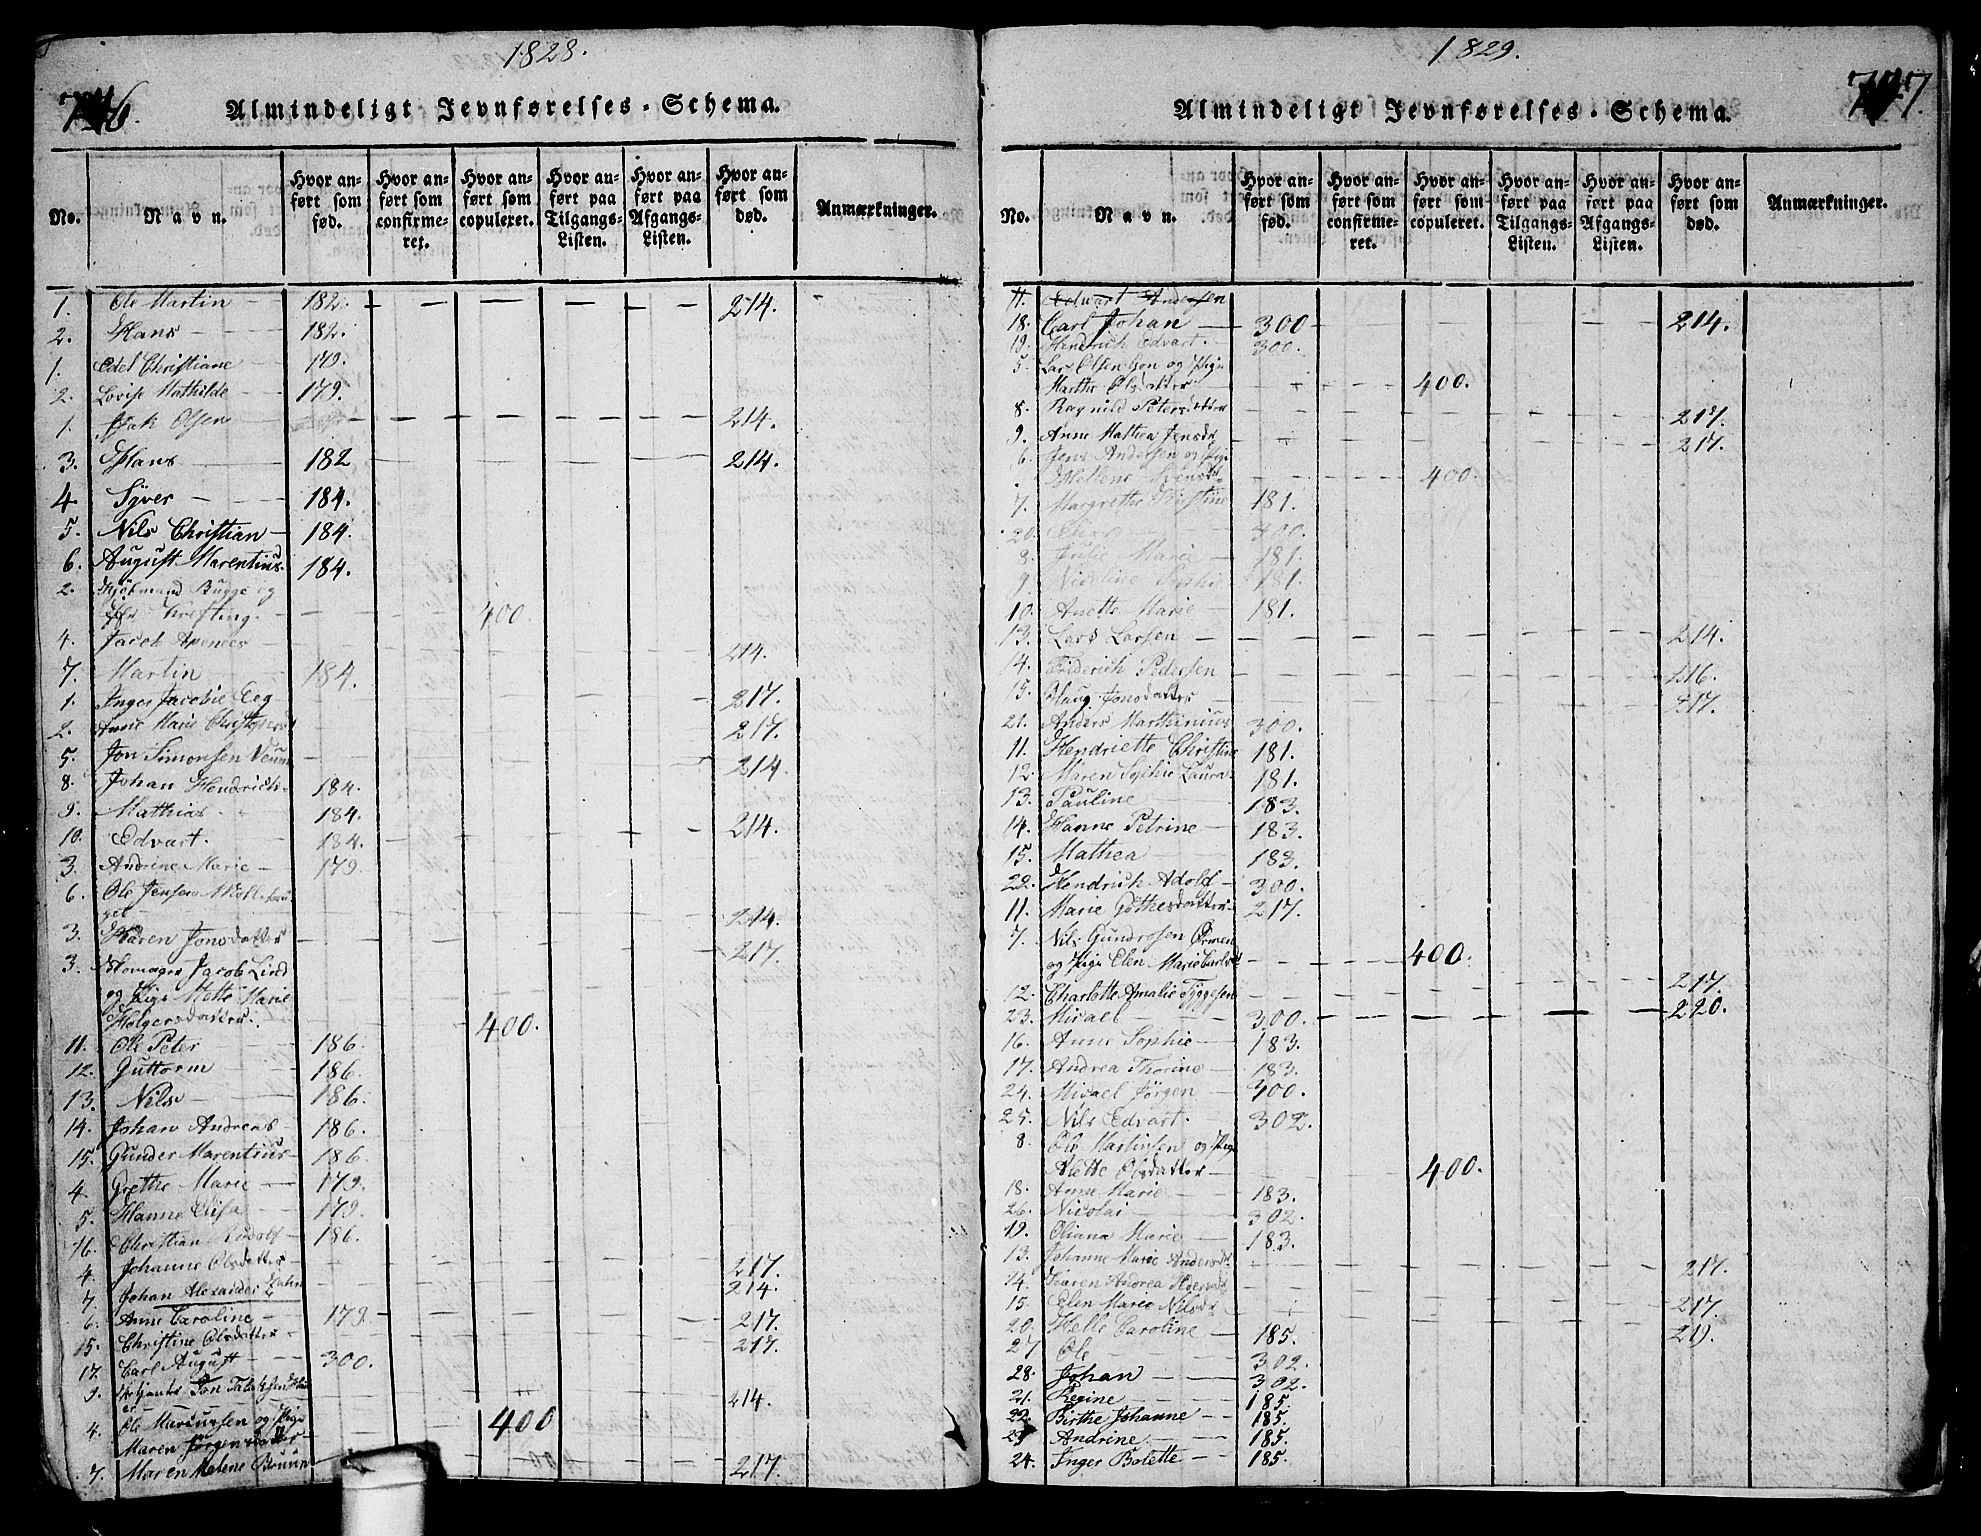 1828.
746.
Almindeligt Jevnførelses-Schema.
No. | Navn. | Hvor anført som fød. | Hvor anført som confirmeret. | Hvor anført som copuleret. | Hvor anført paa Tilgangs-Listen. | Hvor anført paa Afgangs-Listen. | Hvor anført som død. | Anmærkninger.
1. Ole Martin — 182. — — — — — 214.
2. Hans — 182.
1. Edel Christiane 179.
2. Lovise Mathilde — 179.
1. Olsen — — — — — — 214.
3. Hans — 182 — — — — — 214.
4. Syver — 184.
5. Nils Christian — 184.
6. August Marentius. 184.
2. Kjöbmand Bugge og
Krefting. — — — 400.
4. Jacob — — — 214.
7. Martin 184.
1. Inger Jacobie Eeg — — — 217.
2. Anne Marie — — — 217.
5. Jon Simonsen — — — 214.
8. Johan Hendrich. 184.
9. Mathias 184.
10. Edvart. 184. — — — — — 214.
3. Andrine Marie — 179.
6. Ole Jensen
— — — 214.
3. Karen Jonsdatter — — — 217.
3. Jacob Lind
og Pige Mette Marie
Holgersdatter. — — 400.
11. Ole Peter — 186.
12. Guttorm — 186.
13. Nils — 186.
14. Johan Andreas — 186.
15. Gunder Marentius — 186.
4. Grethe Marie — 179.
5. Hanne Elisa — 179.
16. Christian Rudolf 186.
4. Johanne Olsdatter — — — 217.
7. Johan Alexander — — — 214.
6. Anne Caroline — 179 — — — — — 217.
15. Christine Olsdatter — — 217.
17. Carl August — 300.
9. — — — 214.
4. Ole og Pige
Maren Jörgensdatter — 400
7. Maren Malene Bruun 217.
1829.
747.
Almindeligt Jevnførelses-Schema.
No. | Navn. | Hvor anført som fød. | Hvor anført som confirmeret. | Hvor anført som copuleret. | Hvor anført paa Tilgangs-Listen. | Hvor anført paa Afgangs-Listen. | Hvor anført som død. | Anmærkninger.
Edvart Andersen
18. Carl Johan — 300 — — — — — 214.
19. Hendrich Edvart. — 300.
5. Lars Olsen og Pige
Marthe Olsdatter — — — 400.
8. Ragnild Petersdatter 217.
9. Anne Mathea — — — 217.
6. Jens Andersen og Pige
— — — 400.
7. Margrethe Kirstine 181.
20. 300.
8. Julie Marie — 181.
9. Nicoline Sophie — 181.
10. Anette Marie — 181.
13. Lars Larsen — — — 214.
14. Friderich Pedersen — — — 216.
15. Jonsdatter — — — 217.
21. Anders Marthinius 300.
11. Hendriette Christine 181.
12. Maren Sophie Laura. 181.
13. Pauline — 183.
14. Hanne Petrine — 183.
15. Mathea — 183.
22. Hendrich Adolf — 300.
11. Marie — 217.
7. Nils Gundersen
og Pige Elen Marie — — — 400.
12. Charlotte Amalie Tyggesen — — — 217.
23. Micael — 300. — — — — — 220.
16. Anne Sophie — 183.
17. Andrea Thorine — 183.
24. Micael Jörgen — 300.
25. Nils Edvart. — 302.
8. Ole Martinsen og Pige
Alette Olsdatter — 400.
18. Anne Marie — 183.
26. Nicolai — 302.
19. Oliana Marie — 183.
13. Johanne Marie — — — 217.
14. Karen Andrea — — —
15. Elen Marie — — — 217.
20. Helle Caroline — 185. 219.
27 Ole — 302.
28. Johan — 302.
21. Regine — 185.
22. Birthe Johanne — 185.
23 Andrine — 185.
24. Inger Bolette — 185.